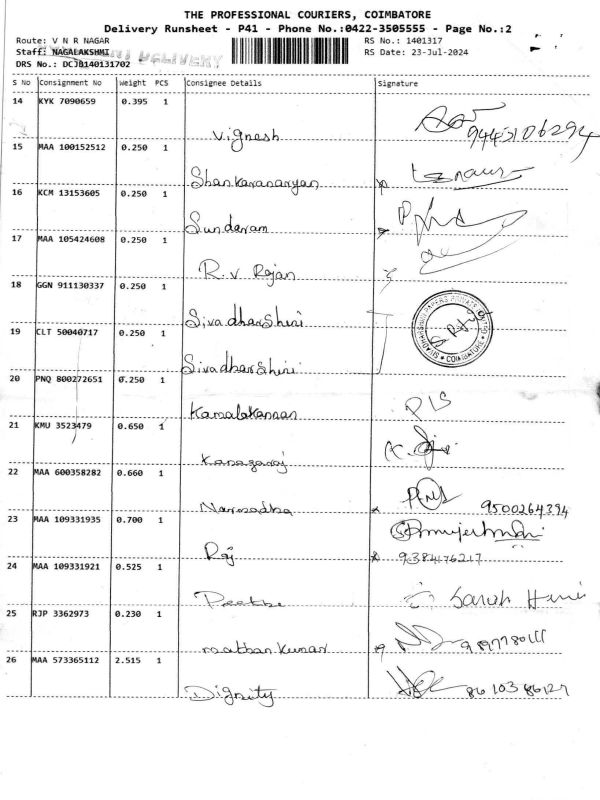 THE PROFESSIONAL COURIERS, COIMBATORE
Delivery Runsheet - P41 - Phone No.:0422-3505555 - Page No.:2
Route: V N R NAGAR
RS No.: 1401317
Staff: NAGALAKSHMI
DELIVERY
RS Date: 23-Jul-2024
DRS No.: DCJB140131702
S No Consignment No Weight PCS Consignee Details Signature
14 KYK 7090659 0.395 1
Vignesh
15 MAA 100152512 0.250 1
Shankaranarayan
16 KCM 13153605 0.250 1
Sundaram
17 MAA 105424608 0.250 1
R.V Rajan
18 GGN 911130337 0.250 1
Sivadharshini
19 CLT 50040717 0.250 1
Sivadharshini
COIMBATORE
20 PNQ 800272651 0.250 1
Kamalakannan
21 KMU 3523479 0.650 1
Kanagaraj
22 MAA 600358282 0.660 1
Narmadha 9500264394
23 MAA 109331935 0.700 1
Raj 9384176217
24 MAA 109331921 0.525 1
Sarah
25 RJP 3362973 0.230 1
mathan kumar
26 MAA 573365112 2.515 1
Dignity